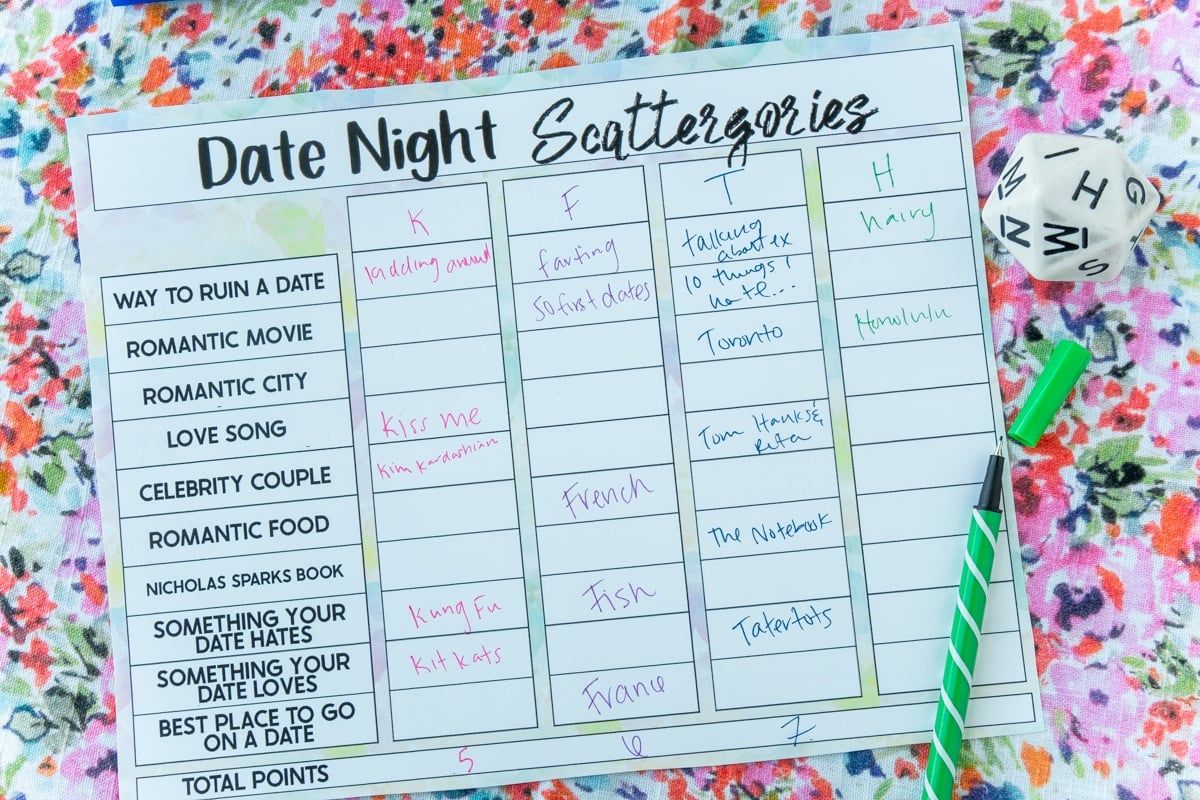 Date Night Scattergories
K F T H
WAY TO RUIN A DATE kidding around farting talking about ex hairy
ROMANTIC MOVIE 50 first dates 10 things I hate...
ROMANTIC CITY Toronto Honolulu
LOVE SONG kiss me
CELEBRITY COUPLE Kim Kardashian Tom Hanks & Rita
ROMANTIC FOOD French
NICHOLAS SPARKS BOOK The Notebook
SOMETHING YOUR DATE HATES Kung Fu Fish
SOMETHING YOUR DATE LOVES Kit kats Tatertots
BEST PLACE TO GO ON A DATE France
TOTAL POINTS 5 6 7
I
M H G
N M S